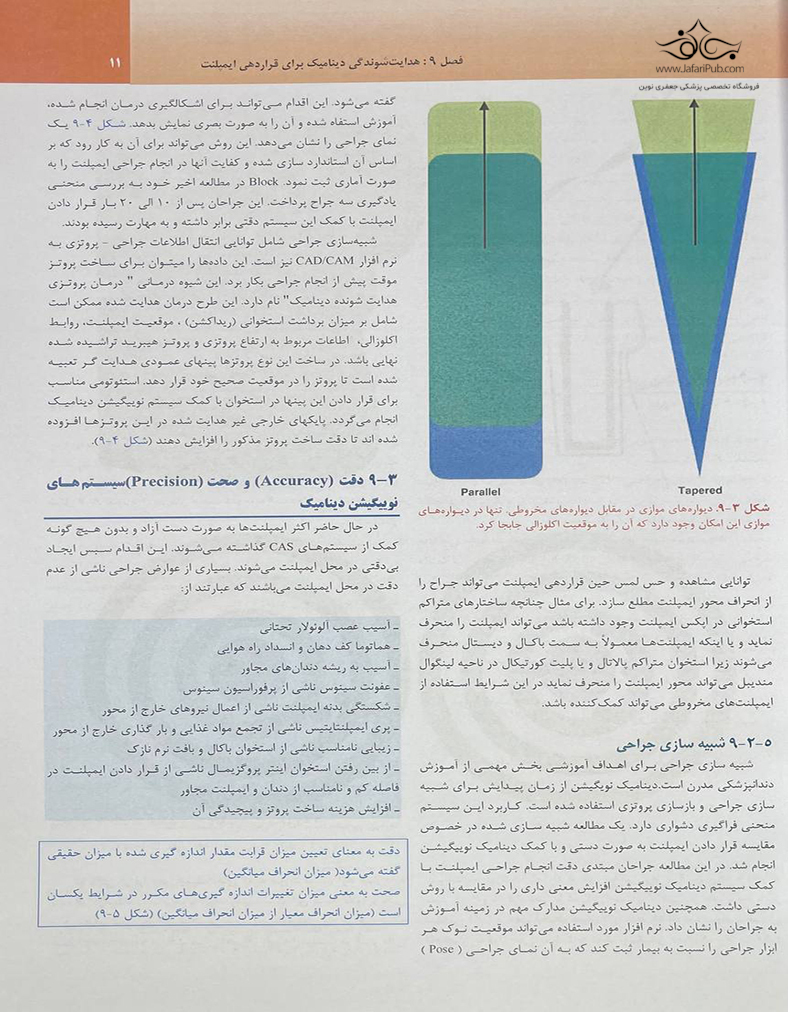 فصل ۹: هدایت‌شوندگی دینامیک برای قراردهی ایمپلنت
۱۱
www.JafariPub.com
فروشگاه تخصصی پزشکی جعفری نوین
Parallel
Tapered
شکل ۳-۹. دیواره‌های موازی در مقابل دیواره‌های مخروطی. تنها در دیواره‌های
موازی این امکان وجود دارد که آن را به موقعیت اکلوزالی جابجا کرد.
توانایی مشاهده و حس لمس حین قراردهی ایمپلنت می‌تواند جراح را
از انحراف محور ایمپلنت مطلع سازد. برای مثال چنانچه ساختارهای متراکم
استخوانی در اپکس ایمپلنت وجود داشته باشد می‌تواند ایمپلنت را منحرف
نماید و یا اینکه ایمپلنت‌ها معمولاً به سمت باکال و دیستال منحرف
می‌شوند زیرا استخوان متراکم پالاتال و یا پلیت کورتیکال در ناحیه لینگوال
مندیبل می‌تواند محور ایمپلنت را منحرف نماید در این شرایط استفاده از
ایمپلنت‌های مخروطی می‌تواند کمک‌کننده باشد.
۹-۲-۵ شبیه سازی جراحی
شبیه سازی جراحی برای اهداف آموزشی بخش مهمی از آموزش
دندانپزشکی مدرن است.دینامیک نویگیشن از زمان پیدایش برای شبیه
سازی جراحی و بازسازی پروتزی استفاده شده است. کاربرد این سیستم
منحنی فراگیری دشواری دارد. یک مطالعه شبیه سازی شده در خصوص
مقایسه قرار دادن ایمپلنت به صورت دستی و با کمک دینامیک نوییگیشن
انجام شد. در این مطالعه جراحان مبتدی دقت انجام جراحی ایمپلنت با
کمک سیستم دینامیک نوییگیشن افزایش معنی داری را در مقایسه با روش
دستی داشت. همچنین دینامیک نوییگیشن مدارک مهم در زمینه آموزش
به جراحان را نشان داد. نرم افزار مورد استفاده می‌تواند موقعیت نوک هر
ابزار جراحی را نسبت به بیمار ثبت کند که به آن نمای جراحی ( Pose )
گفته می‌شود. این اقدام می‌تواند برای اشکالگیری درمان انجام شده،
آموزش استفاه شده و آن را به صورت بصری نمایش بدهد. شکل ۴-۹ یک
نمای جراحی را نشان می‌دهد. این روش می‌تواند برای آن به کار رود که بر
اساس آن استاندارد سازی شده و کفایت آنها در انجام جراحی ایمپلنت را به
صورت آماری ثبت نمود. Block در مطالعه اخیر خود به بررسی منحنی
یادگیری سه جراح پرداخت. این جراحان پس از ۱۰ الی ۲۰ بار قرار دادن
ایمپلنت با کمک این سیستم دقتی برابر داشته و به مهارت رسیده بودند.
شبیه‌سازی جراحی شامل توانایی انتقال اطلاعات جراحی - پروتزی به
نرم افزار CAD/CAM نیز است. این داده‌ها را میتوان برای ساخت پروتز
موقت پیش از انجام جراحی بکار برد. این شیوه درمانی " درمان پروتزی
هدایت شونده دینامیک" نام دارد. این طرح درمان هدایت شده ممکن است
شامل بر میزان برداشت استخوانی (ریداکشن) ، موقعیت ایمپلنت، روابط
اکلوزالی، اطاعات مربوط به ارتفاع پروتزی و پروتز هیبرید تراشیده شده
نهایی باشد. در ساخت این نوع پروتزها پینهای عمودی هدایت گر تعبیه
شده است تا پروتز را در موقعیت صحیح خود قرار دهد. استئوتومی مناسب
برای قرار دادن این پینها در استخوان با کمک سیستم نوییگیشن دینامیک
انجام می‌گردد. پایکهای خارجی غیر هدایت شده در این پروتزها افزوده
شده اند تا دقت ساخت پروتز مذکور را افزایش دهند (شکل ۴-۹).
۹-۳ دقت (Accuracy) و صحت (Precision)سیستم های
نوییگیشن دینامیک
در حال حاضر اکثر ایمپلنت‌ها به صورت دست آزاد و بدون هیچ گونه
کمک از سیستم‌های CAS گذاشته می‌شوند. این اقدام سبس ایجاد
بی‌دقتی در محل ایمپلنت می‌شوند. بسیاری از عوارض جراحی ناشی از عدم
دقت در محل ایمپلنت می‌باشند که عبارتند از:
ـ آسیب عصب آلوئولار تحتانی
ـ هماتوما کف دهان و انسداد راه هوایی
ـ آسیب به ریشه دندان‌های مجاور
ـ عفونت سینوس ناشی از پرفوراسیون سینوس
ـ شکستگی بدنه ایمپلنت ناشی از اعمال نیروهای خارج از محور
ـ پری ایمپلنتایتیس ناشی از تجمع مواد غذایی و بار گذاری خارج از محور
ـ زیبایی نامناسب ناشی از استخوان باکال و بافت نرم نازک
ـ از بین رفتن استخوان اینتر پروگزیمال ناشی از قرار دادن ایمپلنت در
فاصله کم و نامناسب از دندان و ایمپلنت مجاور
ـ افزایش هزینه ساخت پروتز و پیچیدگی آن
دقت به معنای تعیین میزان قرابت مقدار اندازه گیری شده با میزان حقیقی
گفته می‌شود( میزان انحراف میانگین)
صحت به معنی میزان تغییرات اندازه گیری‌های مکرر در شرایط یکسان
است (میزان انحراف معیار از میزان انحراف میانگین) (شکل ۵-۹)